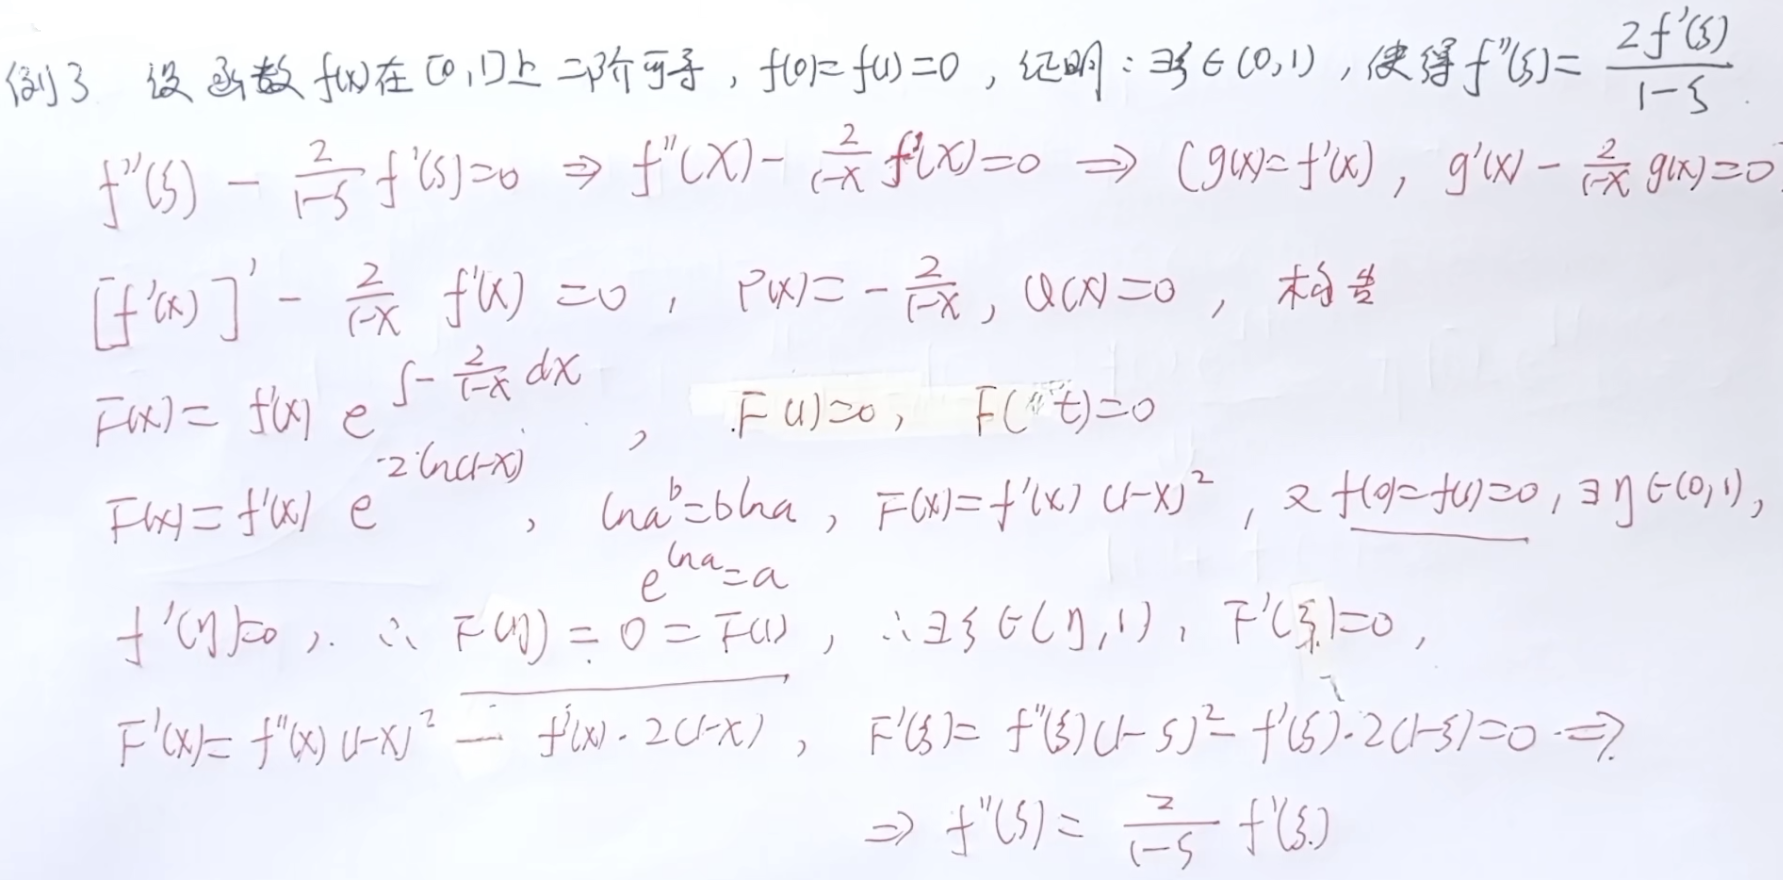 例3 设函数f(x)在[0,1]上二阶可导，f(0)=f(1)=0，证明：∃ξ∈(0,1)，使得f''(ξ)= \frac{2f'(ξ)}{1-ξ}.
f''(ξ) - \frac{2}{1-ξ} f'(ξ)=0 ⇒ f''(x) - \frac{2}{1-x} f'(x)=0 ⇒ (g(x)=f'(x), g'(x) - \frac{2}{1-x} g(x)=0
[f'(x)]' - \frac{2}{1-x} f'(x) =0, P(x)= -\frac{2}{1-x}, Q(x)=0, 构造
F(x)= f'(x) e^{∫-\frac{2}{1-x}dx}, F(1)=0, F( t)=0
F(x)= f'(x) e^{-2ln(1-x)}, lna^b=blna, F(x)=f'(x)(1-x)^2, 又f(0)=f(1)=0, ∃η∈(0,1),
e^{lna}=a
f'(η)=0, ∴ F(η) = 0 = F(1), ∴∃ξ∈(η,1), F'(ξ)=0,
F'(x)= f''(x)(1-x)^2 - f'(x)·2(1-x), F'(ξ)= f''(ξ)(1-ξ)^2 - f'(ξ)·2(1-ξ)=0 ⇒
⇒ f''(ξ)= \frac{2}{1-ξ} f'(ξ)